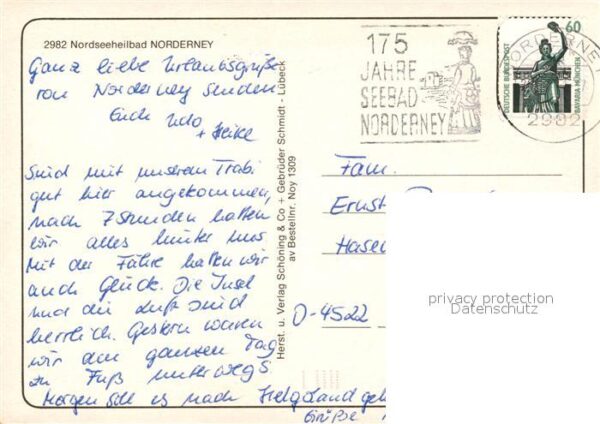 2982 Nordseeheilbad NORDERNEY
Ganz liebe Urlaubsgrüße
von Norderney senden
Euch Udo
+ Heike
Sind mit unserem Trabi
gut hier angekommen,
nach 7 Stunden hatten
wir alles hinter uns.
Mit der Fähre hatten wir
auch Glück. Die Insel
und die Luft sind
herrlich. Gestern waren
wir den ganzen Tag
zu Fuß unterwegs
Morgen soll es nach Helgoland geh
Grüße
Herst. u. Verlag Schöning & Co + Gebrüder Schmidt - Lübeck
av Bestellnr. Noy 1309
175
JAHRE
SEEBAD
NORDERNEY
NORDERNEY
2982
60
DEUTSCHE BUNDESPOST
BAVARIA MÜNCHEN
Fam.
Ernst
Hasen
D-4522
privacy protection
Datenschutz